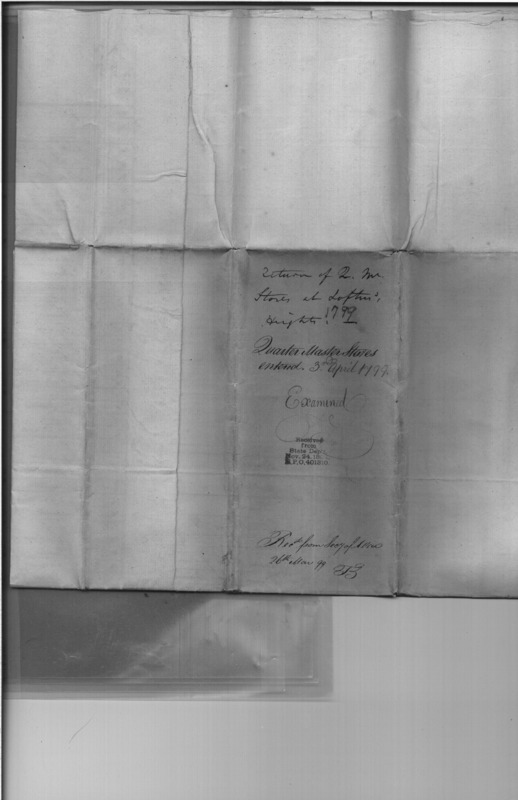 Return of Q. Mr.
Stores at Loftus's
Heights. 1799
Quarter Master Stores
entered. 3rd April 1799.
Examined
Received
from
State Dep
Nov. 24, 19
A.F.O.
Recd from Secy of War
26th Mar 99